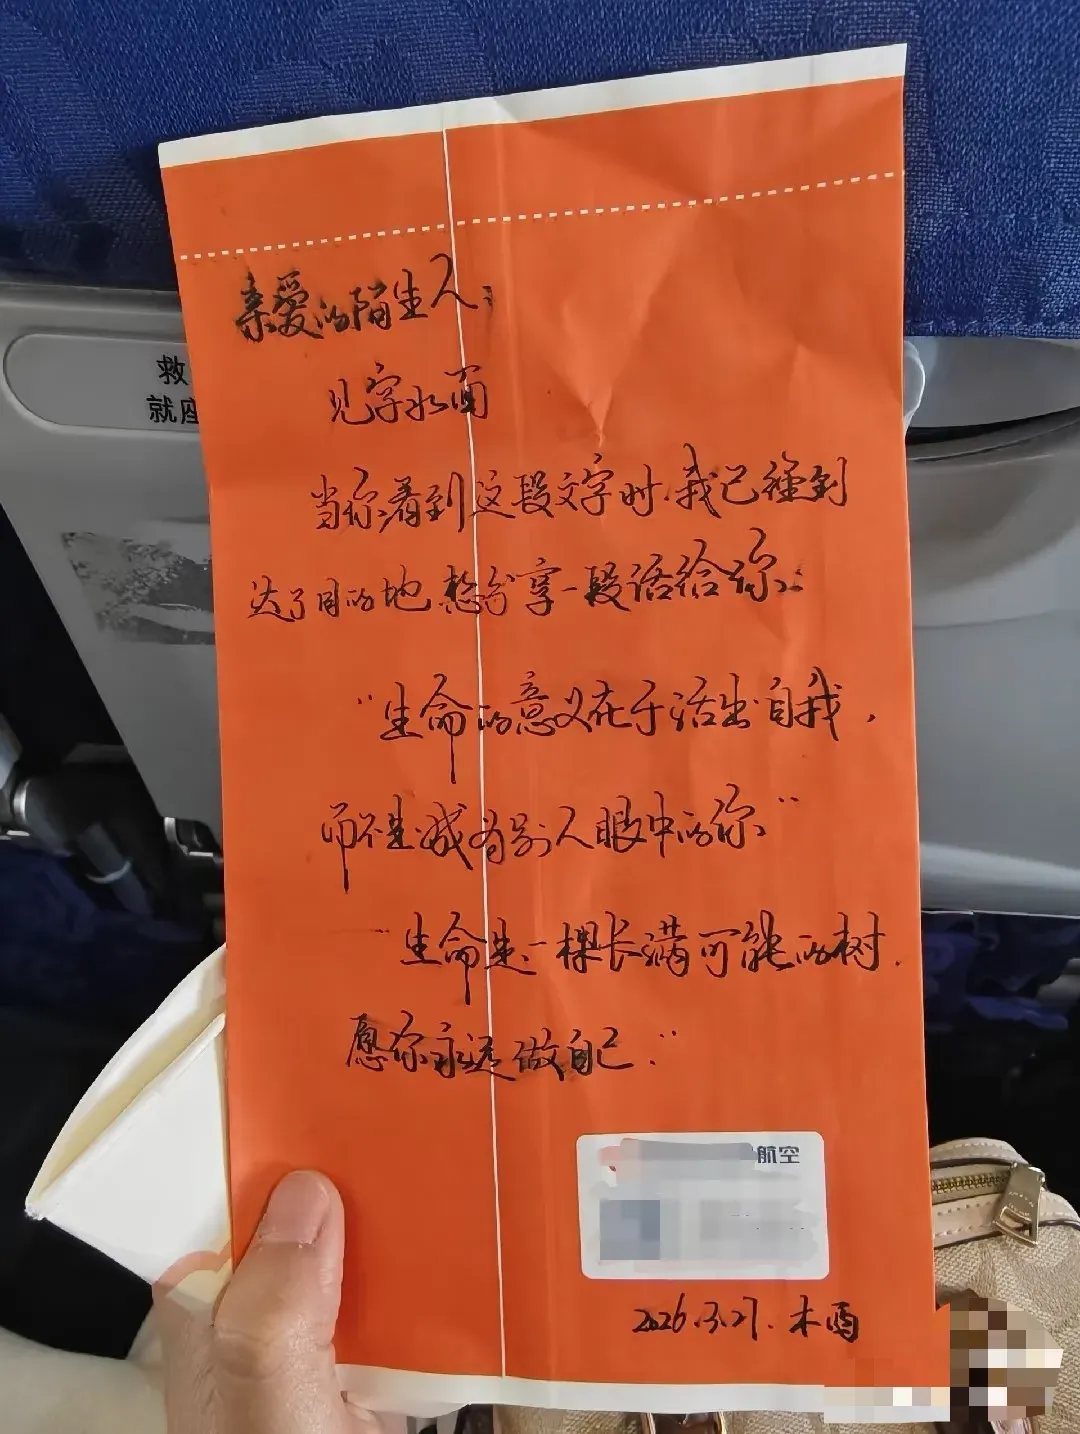 救
就座
亲爱的陌生人：
见字如面
当你看到这段文字时，我已经到
达了目的地，想分享一段话给你：
“生命的意义在于活出自我，
而不是成为别人眼中的你”
“生命是一棵长满可能的树，
愿你永远做自己.”
航空
2026.3.27. 木酉